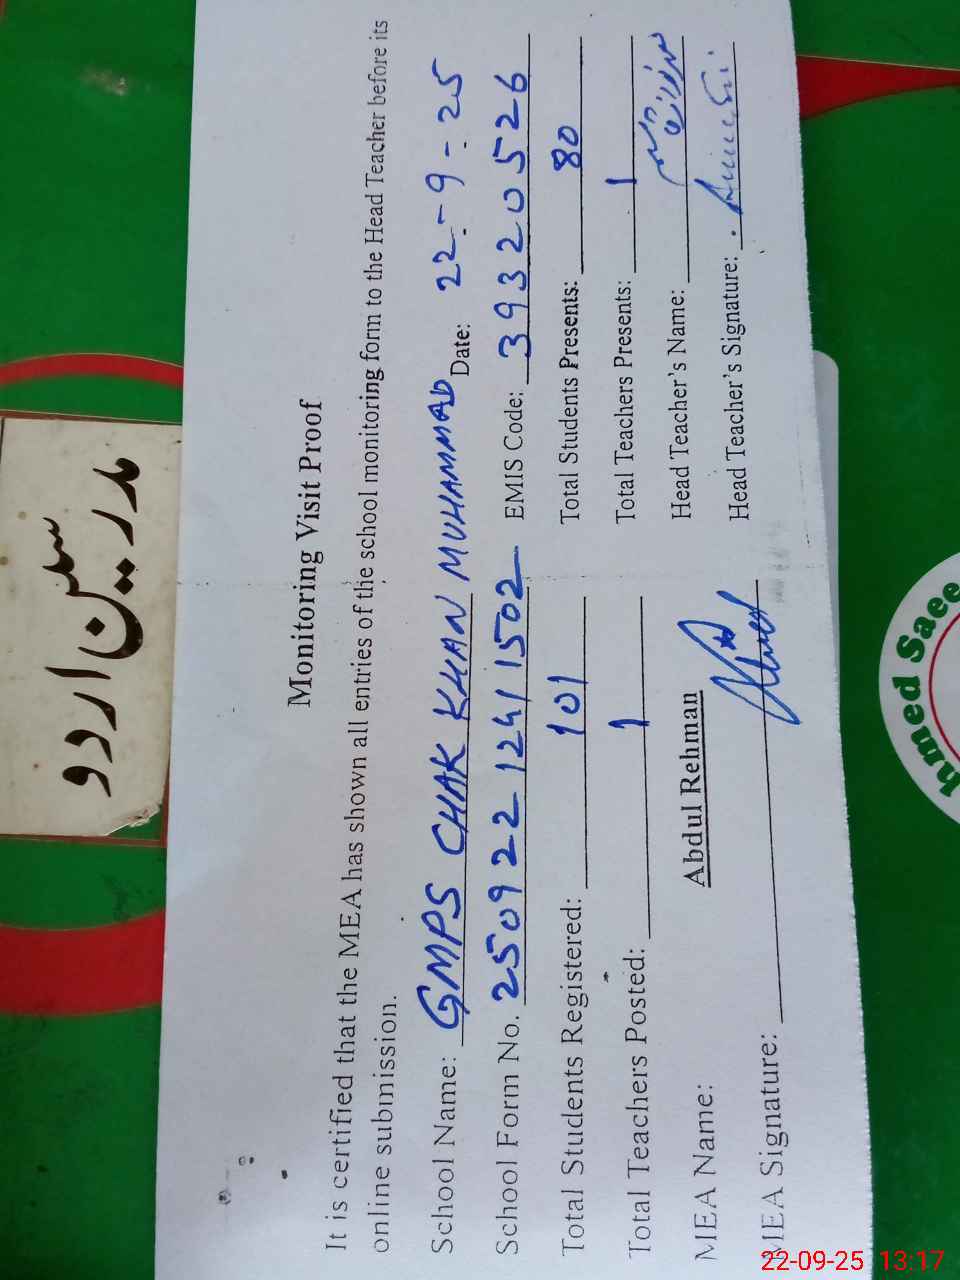 Monitoring Visit Proof
It is certified that the MEA has shown all entries of the school monitoring form to the Head Teacher before its
online submission.
School Name: GMPS CHAK KHAN MUHAMMAD Date: 22-9-25
School Form No. 25092212411502 EMIS Code: 39320526
Total Students Registered: 101 Total Students Presents: 80
Total Teachers Posted: 1 Total Teachers Presents: 1
MEA Name: Abdul Rehman Head Teacher's Name:
MEA Signature: Head Teacher's Signature:
اردو
hmed Saee
22-09-25 13:17